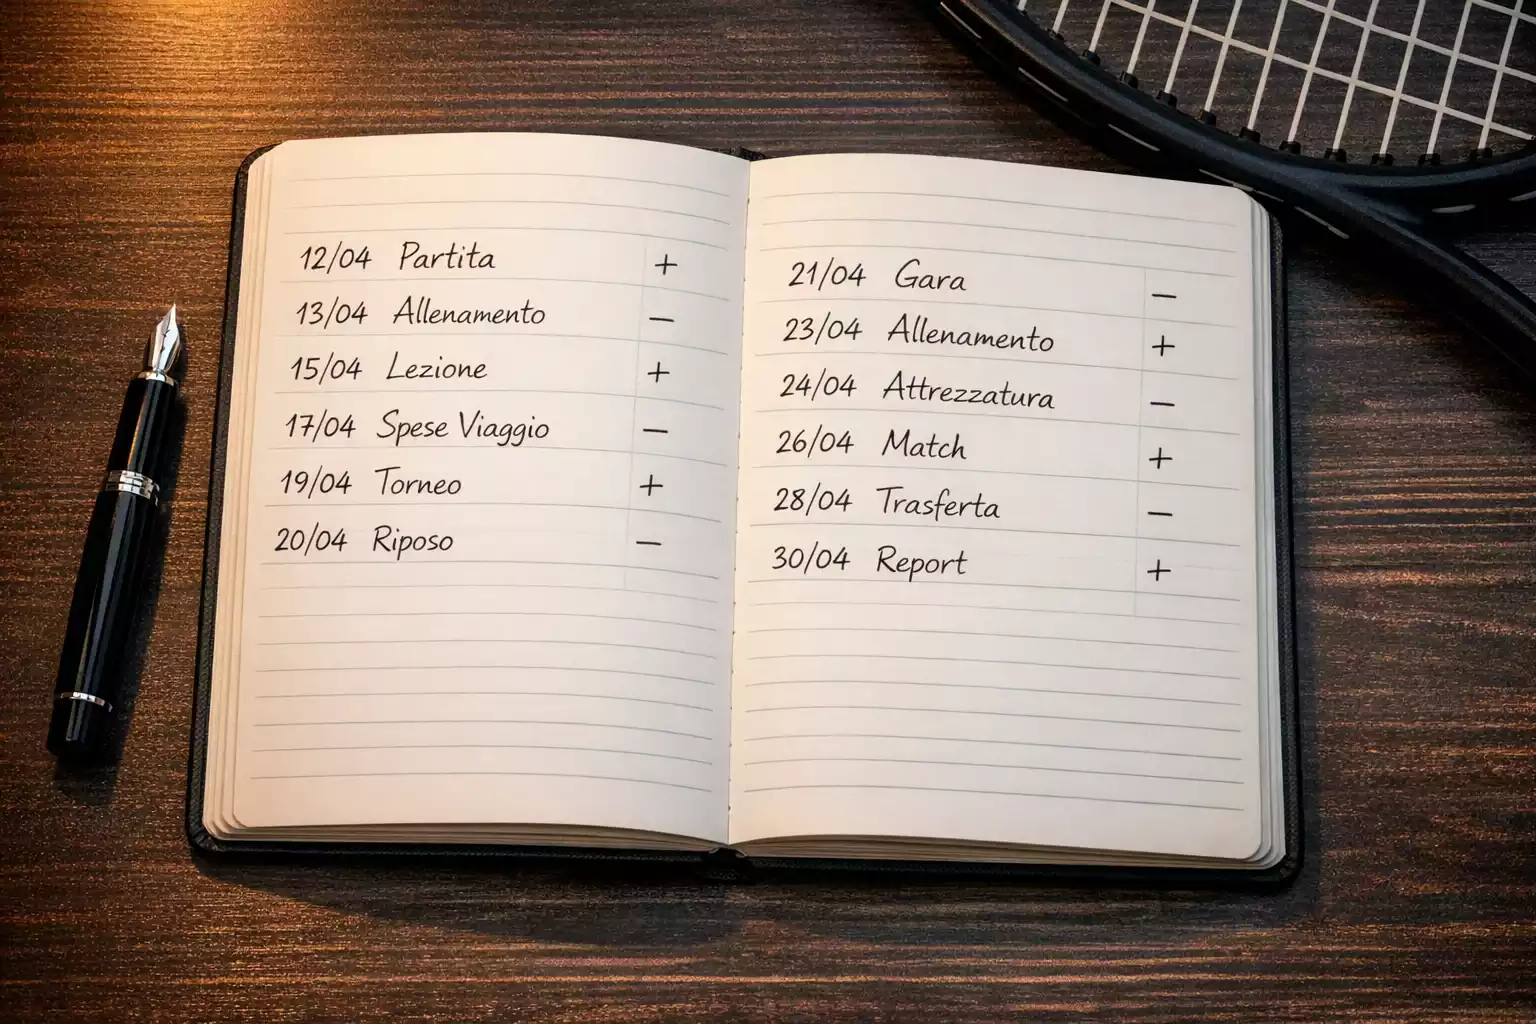 12/04 Partita +
13/04 Allenamento −
15/04 Lezione +
17/04 Spese Viaggio −
19/04 Torneo +
20/04 Riposo −
21/04 Gara −
23/04 Allenamento +
24/04 Attrezzatura −
26/04 Match +
28/04 Trasferta −
30/04 Report +